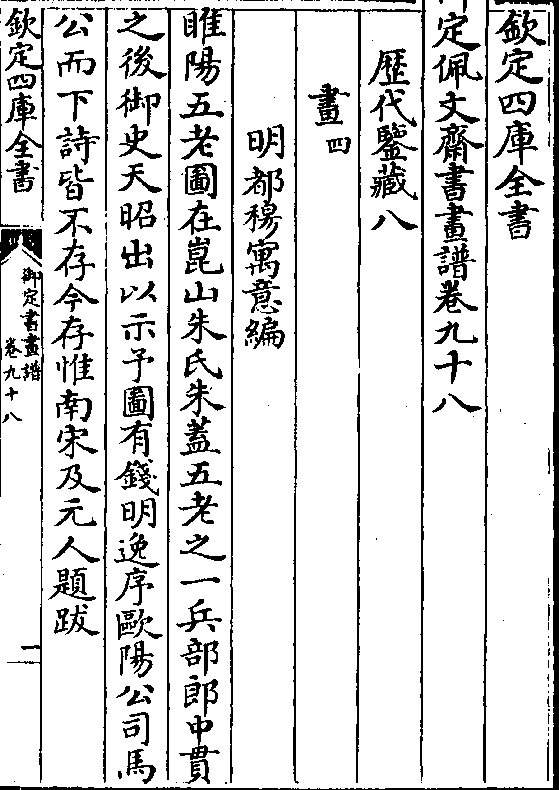 欽定四庫全書
御定佩文齋書畫譜卷九十八
歷代鑒藏八
畫四
明都穆寓意編
睢陽五老圖在崑山朱氏朱蓋五老之一兵部郎中貫
之後御史天昭出以示予圖有錢明逸序歐陽公司馬
公而下詩皆不存今存惟南宋及元人題跋
欽定四庫全書
御定書畫譜
卷九十八
一